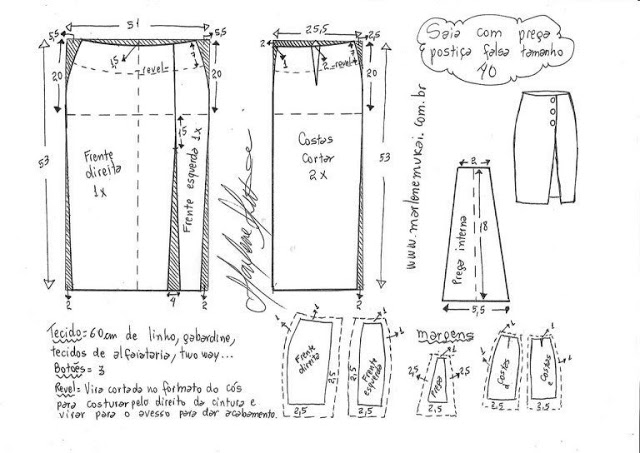 51
5,5
5,5
1,5
revel
7
20
20
15
53
Frente
direita
1x
Frente esquerda 1x
2
4
2
25,5
2
2,5
1
2
revel
7
20
53
Costas
Cortar
2x
Saia com prega
postiça falsa tamanho
40
www.marlenemukai.com.br
2
Prega interna
18
5,5
Tecido= 60cm de linho, gabardine,
tecidos de alfaiataria, two way...
Botões= 3
Revel= Vira cortada no formato do cós
para costurar pelo direito da cintura e
virar para o avesso para dar acabamento.
1
1
Frente
direita
2,5
2,5
1
1
Frente
esquerda
2,5
2,5
margens
1
2,5
2,5
Prega
2,5
1
1
Costas
d
2,5
1
1
Costas
e
2,5